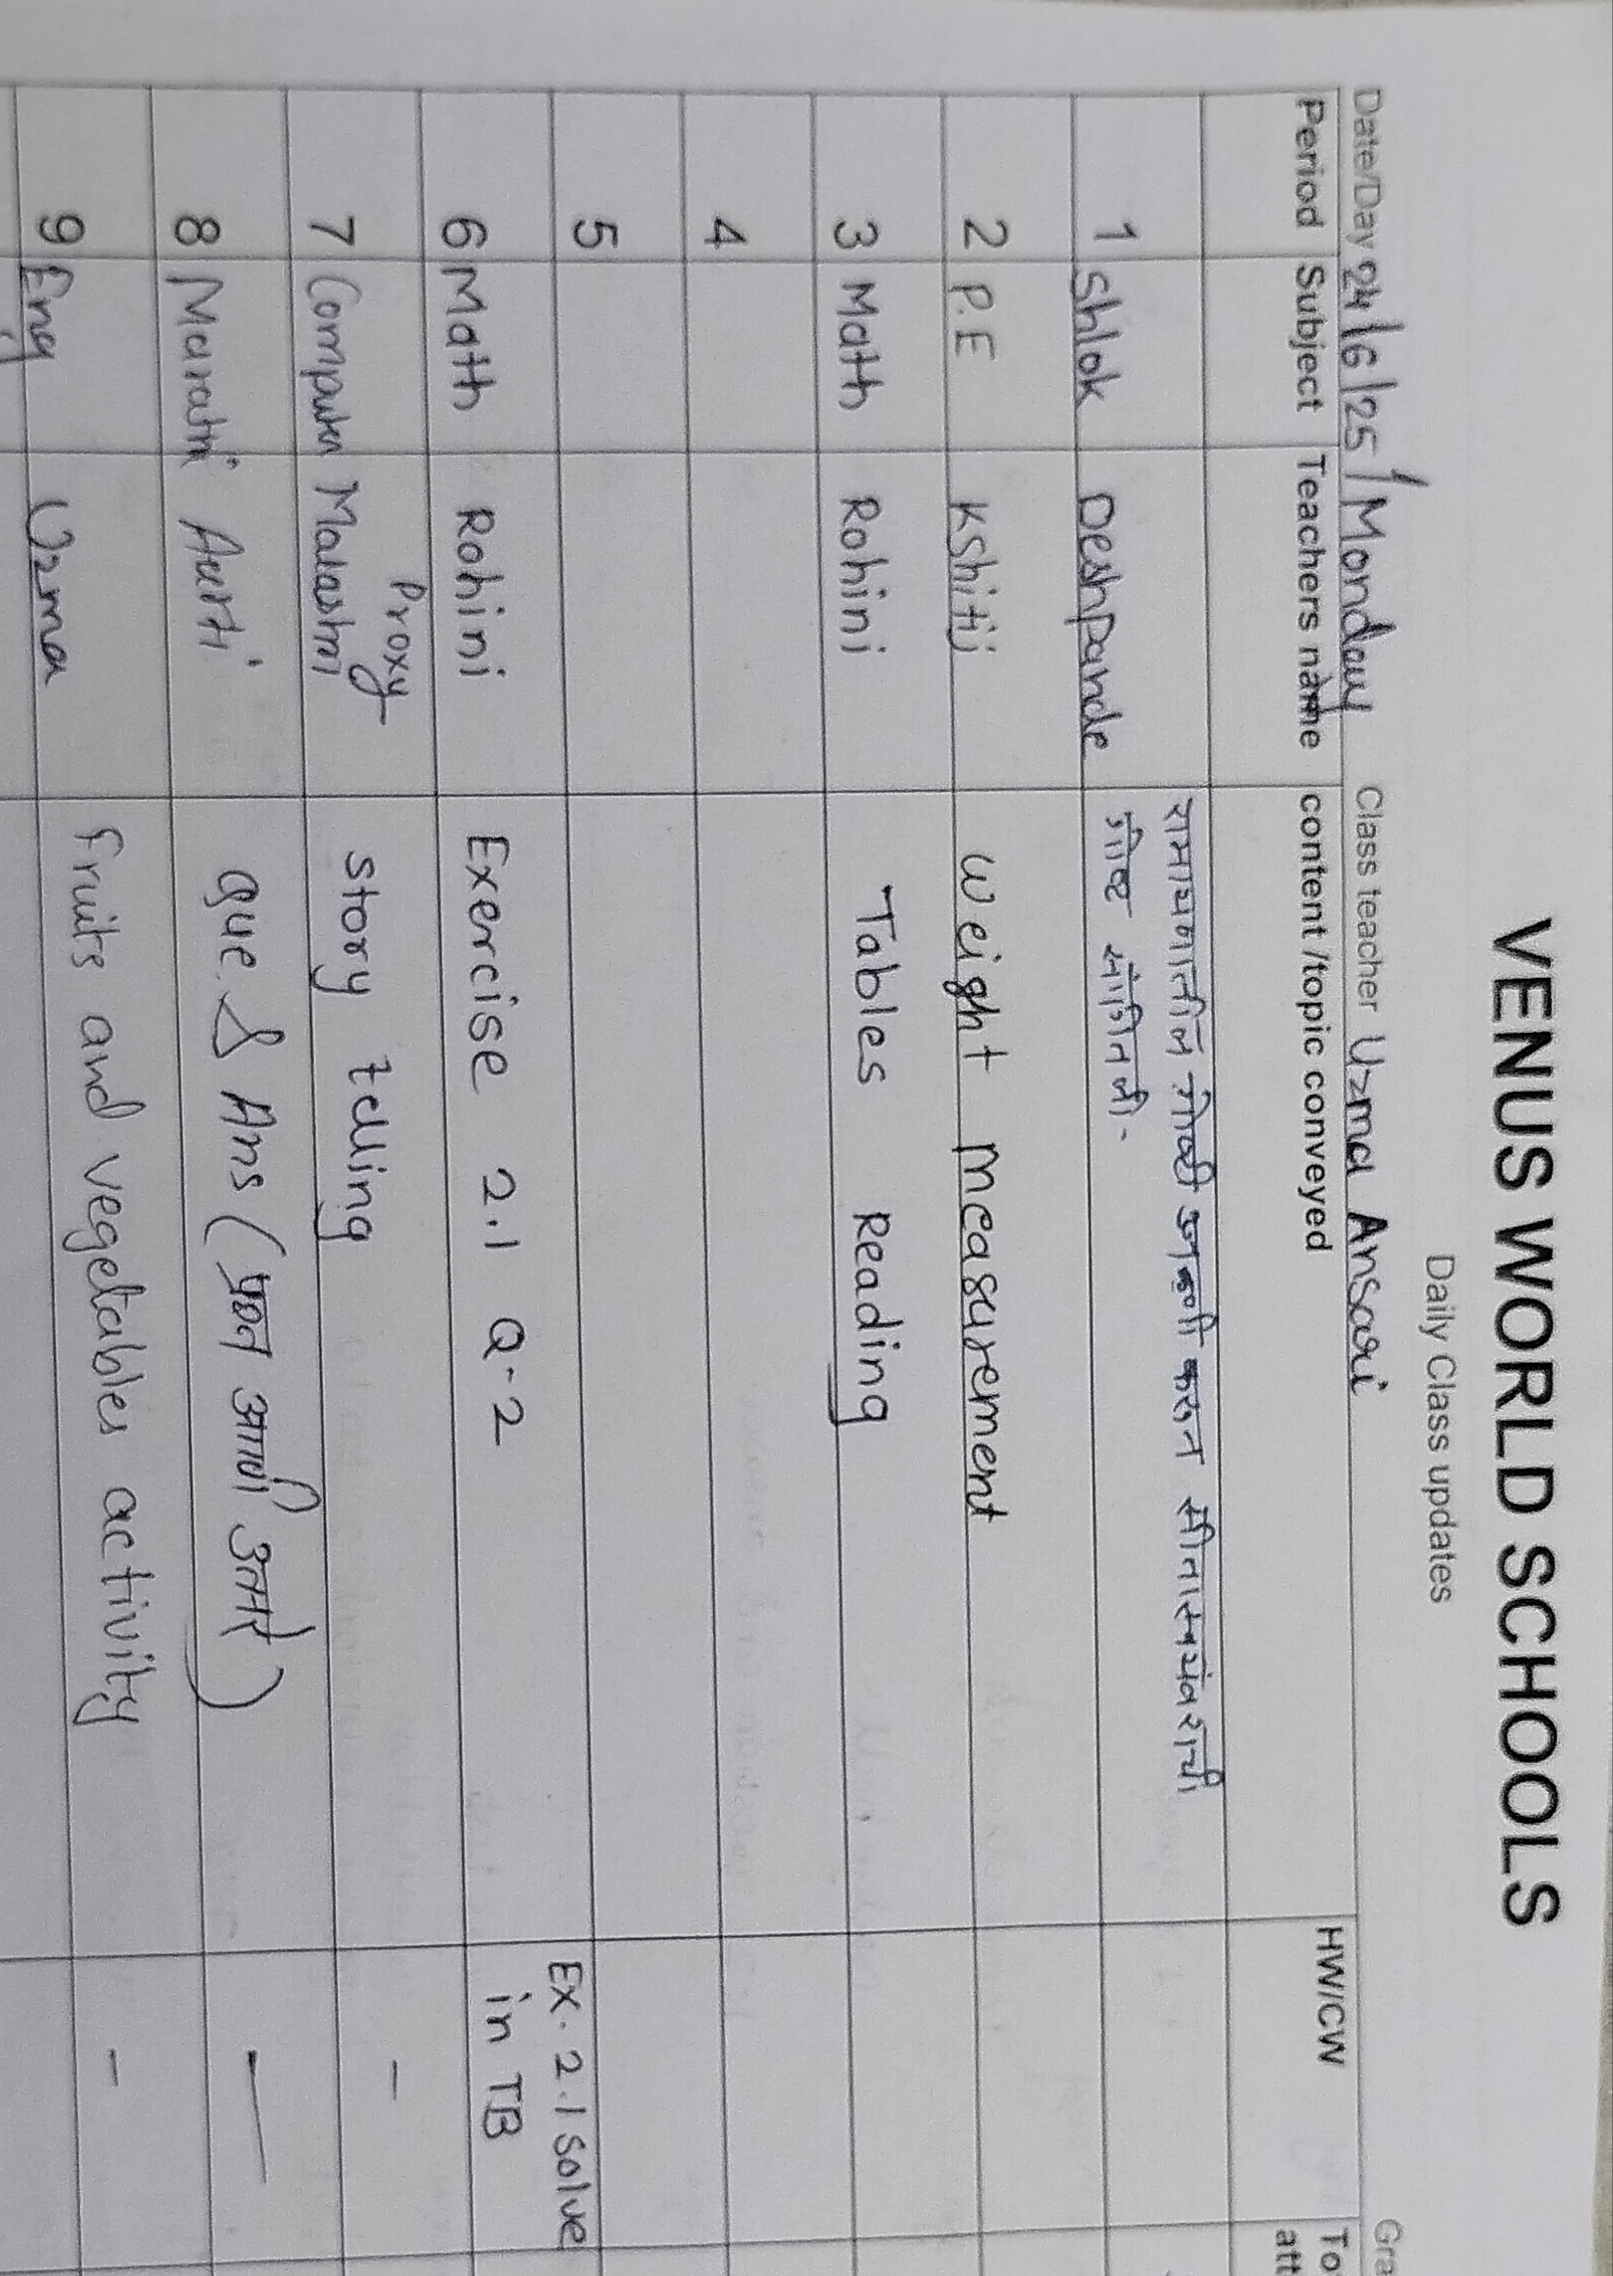 VENUS WORLD SCHOOLS
Daily Class updates
Date/Day 24/6/25/Monday Class teacher Uzma Ansari Gra
Period Subject Teachers name content /topic conveyed HW/CW To
att
रामायणातील गोष्टी उजळणी करून सीतास्वयंवराची
1 Shlok Deshpande गोष्ट सांगितली.
2 P.E Kshitij Weight measurement
3 Math Rohini Tables Reading
4
5
6 Math Rohini Exercise 2.1 Q-2 Ex. 2.1 Solve
in TB
Proxy
7 Computer Malashri story telling -
8 Marathi Aarti que & Ans (प्रश्न आणि उत्तरे) —
9 Eng Uzma fruits and vegetables activity -